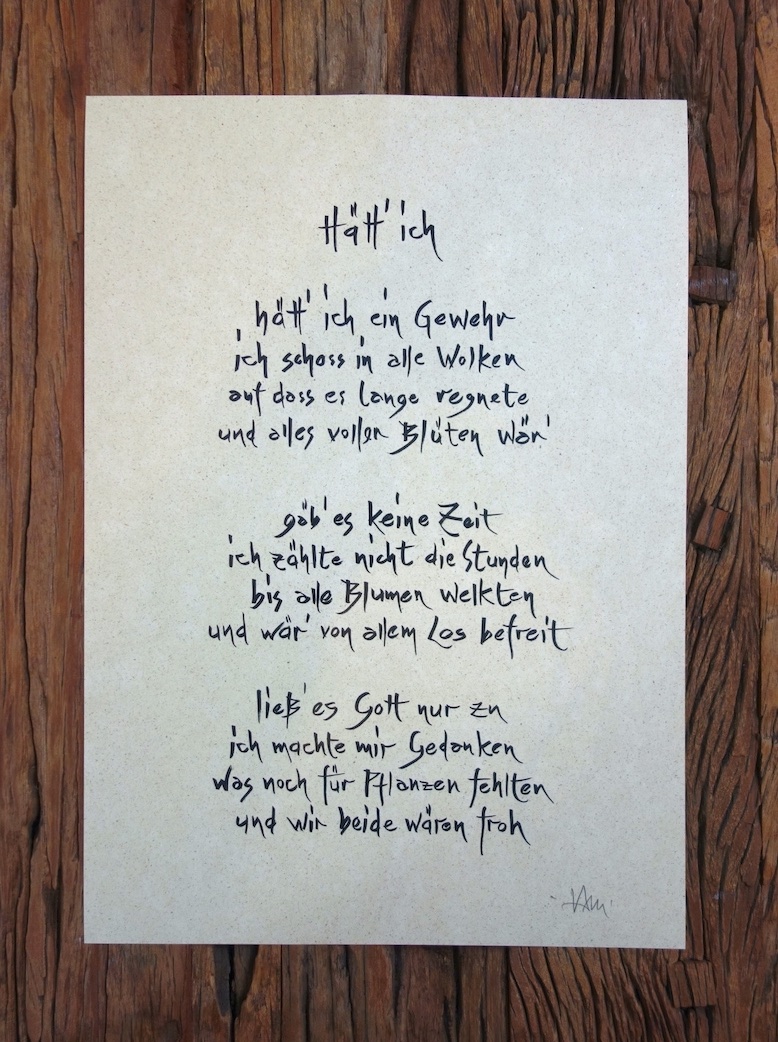 Hätt' ich
hätt' ich ein Gewehr
ich schoss in alle Wolken
auf dass es lange regnete
und alles voller Blüten wär'
gäb' es keine Zeit
ich zählte nicht die Stunden
bis alle Blumen welkten
und wär' von allem Los befreit
ließ' es Gott nur zu
ich machte mir Gedanken
was noch für Pflanzen fehlten
und wir beide wären froh